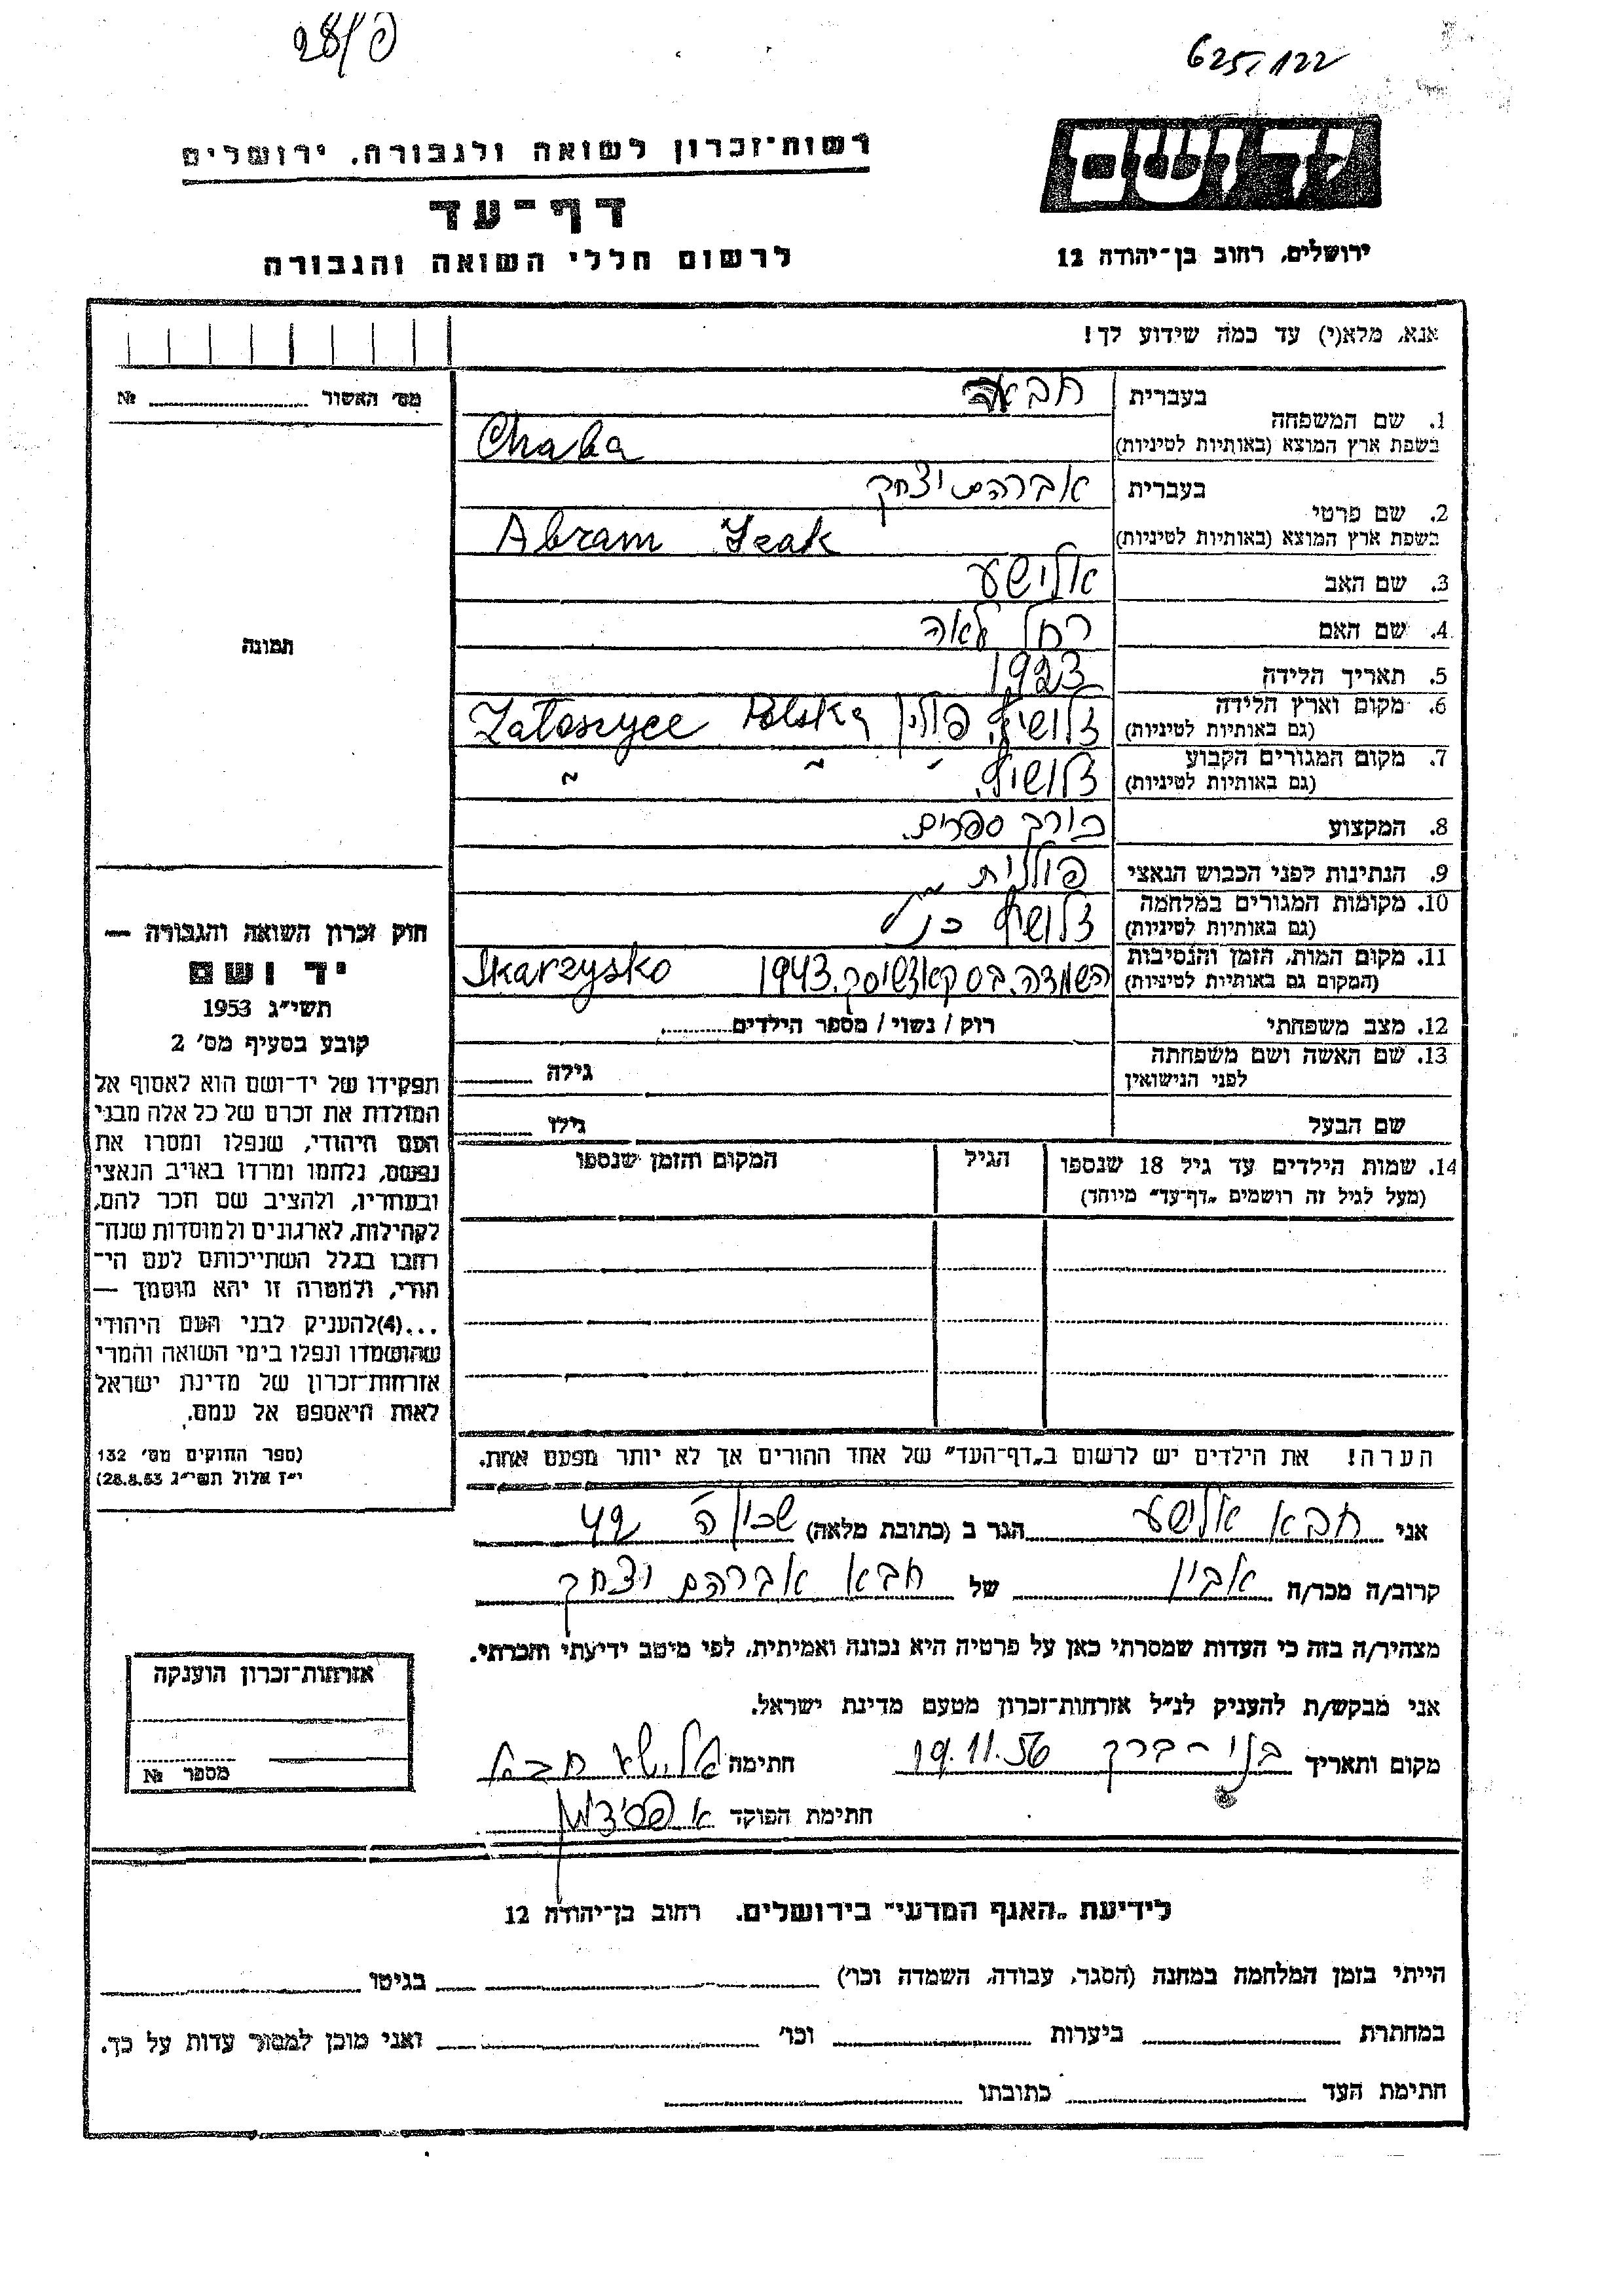 28/פ
625/122
רשות־זכרון לשואה ולגבורה, ירושלים
דף־עד
לרשום חללי השואה והגבורה
יד ושם
ירושלים, רחוב בן־יהודה 12
אנא, מלא(י) עד כמה שידוע לך!
מס׳ האשור № 
1. שם המשפחה
בעברית חבא
בשפת ארץ המוצא (באותיות לטיניות) Chaba
2. שם פרטי
בעברית אברהם יצחק
בשפת ארץ המוצא (באותיות לטיניות) Abram Icak
3. שם האב אלישע
4. שם האם רחל לאה
5. תאריך הלידה 1923
6. מקום וארץ הלידה (גם באותיות לטיניות) זלושיץ, פולין Zaloszyce Polska
7. מקום המגורים הקבוע (גם באותיות לטיניות) זלושיץ, ״ ״
8. המקצוע כורך ספרים.
9. הנתינות לפני הכבוש הנאצי פולנית
10. מקומות המגורים במלחמה (גם באותיות לטיניות) זלושיץ כנ״ל
11. מקום המות, הזמן והנסיבות (המקום גם באותיות לטיניות) השמדה. בסקארזשיסק. 1943 Skarzysko
12. מצב משפחתי רוק / נשוי / מספר הילדים
13. שם האשה ושם משפחתה לפני הנישואין גילה
שם הבעל גילו
14. שמות הילדים עד גיל 18 שנספו הגיל המקום והזמן שנספו
(מעל לגיל זה רושמים „דף־עד״ מיוחד)
הערה! את הילדים יש לרשום ב„דף־העד״ של אחד ההורים אך לא יותר מפעם אחת.
תמונה
חוק זכרון השואה והגבורה —
יד ושם
תשי״ג 1953
קובע בסעיף מס׳ 2
תפקידו של יד־ושם הוא לאסוף אל
המולדת את זכרם של כל אלה מבני
העם היהודי, שנפלו ומסרו את
נפשם, נלחמו ומרדו באויב הנאצי
ובעוזריו, ולהציב שם וזכר להם,
לקהילות, לארגונים ולמוסדות שנח־
רבו בגלל השתייכותם לעם הי־
הודי, ולמטרה זו יהא מוסמך —
...(4)להעניק לבני העם היהודי
שהושמדו ונפלו בימי השואה והמרי
אזרחות־זכרון של מדינת ישראל
לאות היאספם אל עמם.
(ספר החוקים מס׳ 132
י״ז אלול תשי״ג 28.8.53)
אני חבא אלישע הגר ב (כתובת מלאה) שכון ה׳ 42
קרוב/ה מכר/ה אביו של חבא אברהם יצחק
מצהיר/ה בזה כי העדות שמסרתי כאן על פרטיה היא נכונה ואמיתית, לפי מיטב ידיעתי והכרתי.
אני מבקש/ת להעניק לנ״ל אזרחות־זכרון מטעם מדינת ישראל.
מקום ותאריך בני־ברק 19.11.56 חתימה אלישע חבא
חתימת הפוקד
אזרחות־זכרון הוענקה
מספר №
לידיעת „האגף המדעי״ בירושלים. רחוב בן־יהודה 12
הייתי בזמן המלחמה במחנה (הסגר, עבודה, השמדה וכו׳) בגיטו
במחתרת ביערות וכו׳ ואני מוכן למסור עדות על כך.
חתימת העד כתובתו